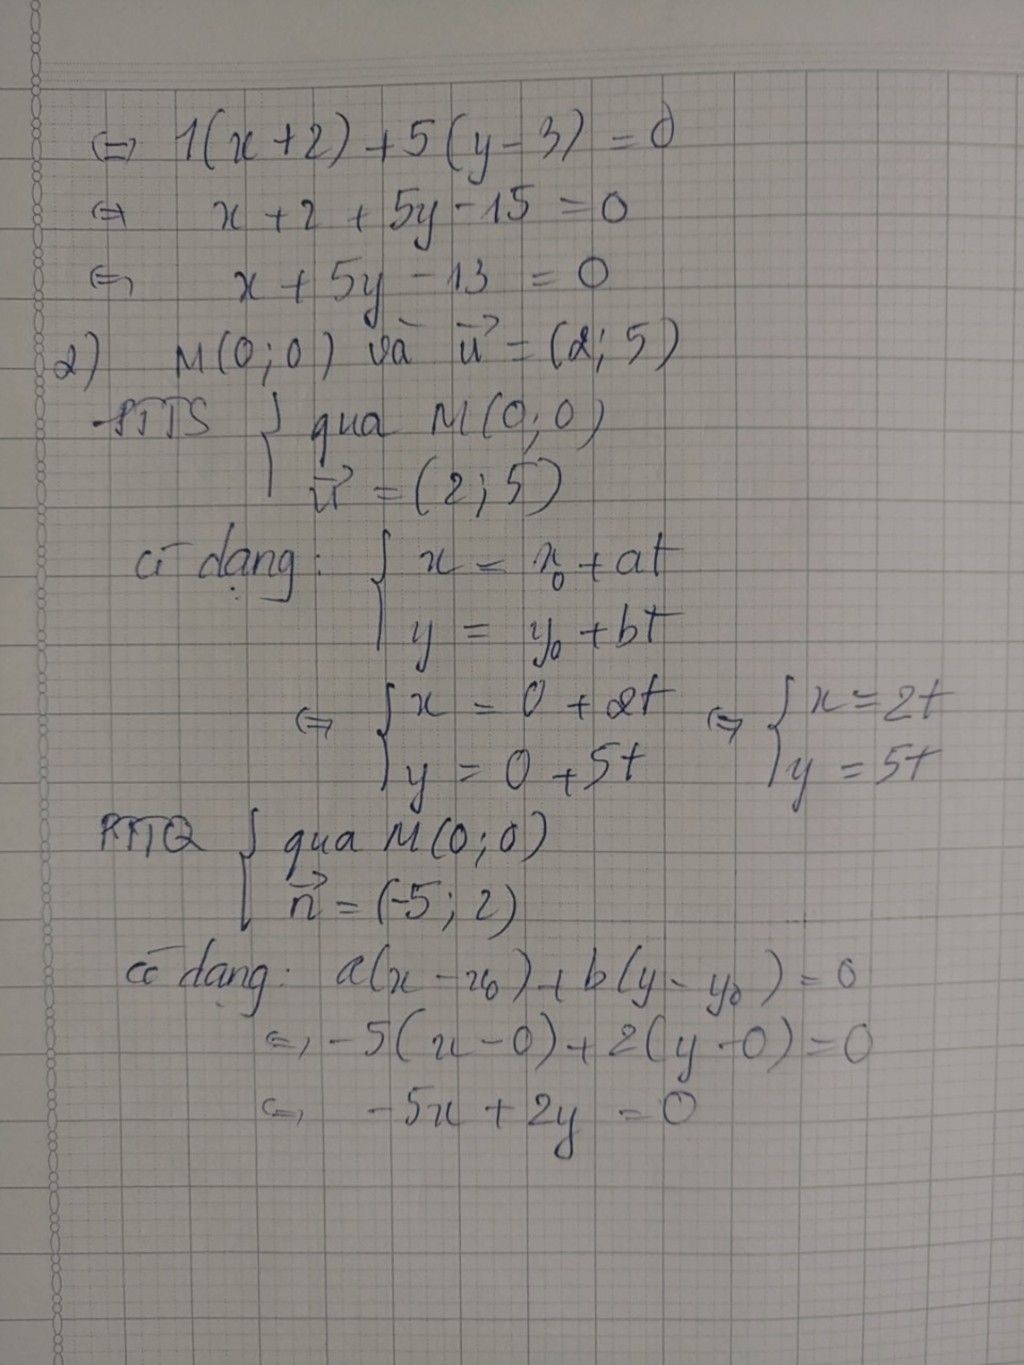 ⇔ 1(x+2) + 5(y-3) = 0
⇔ x + 2 + 5y - 15 = 0
⇔ x + 5y - 13 = 0
2) M(0;0) và u⃗ = (2;5)
-PTTS { qua M(0;0)
u⃗ = (2;5)
có dạng: { x = x₀ + at
y = y₀ + bt
⇔ { x = 0 + 2t ⇔ { x = 2t
y = 0 + 5t y = 5t
PTTQ { qua M(0;0)
n⃗ = (-5;2)
có dạng: a(x - x₀) + b(y - y₀) = 0
⇔ -5(x-0) + 2(y-0) = 0
⇔ -5x + 2y = 0